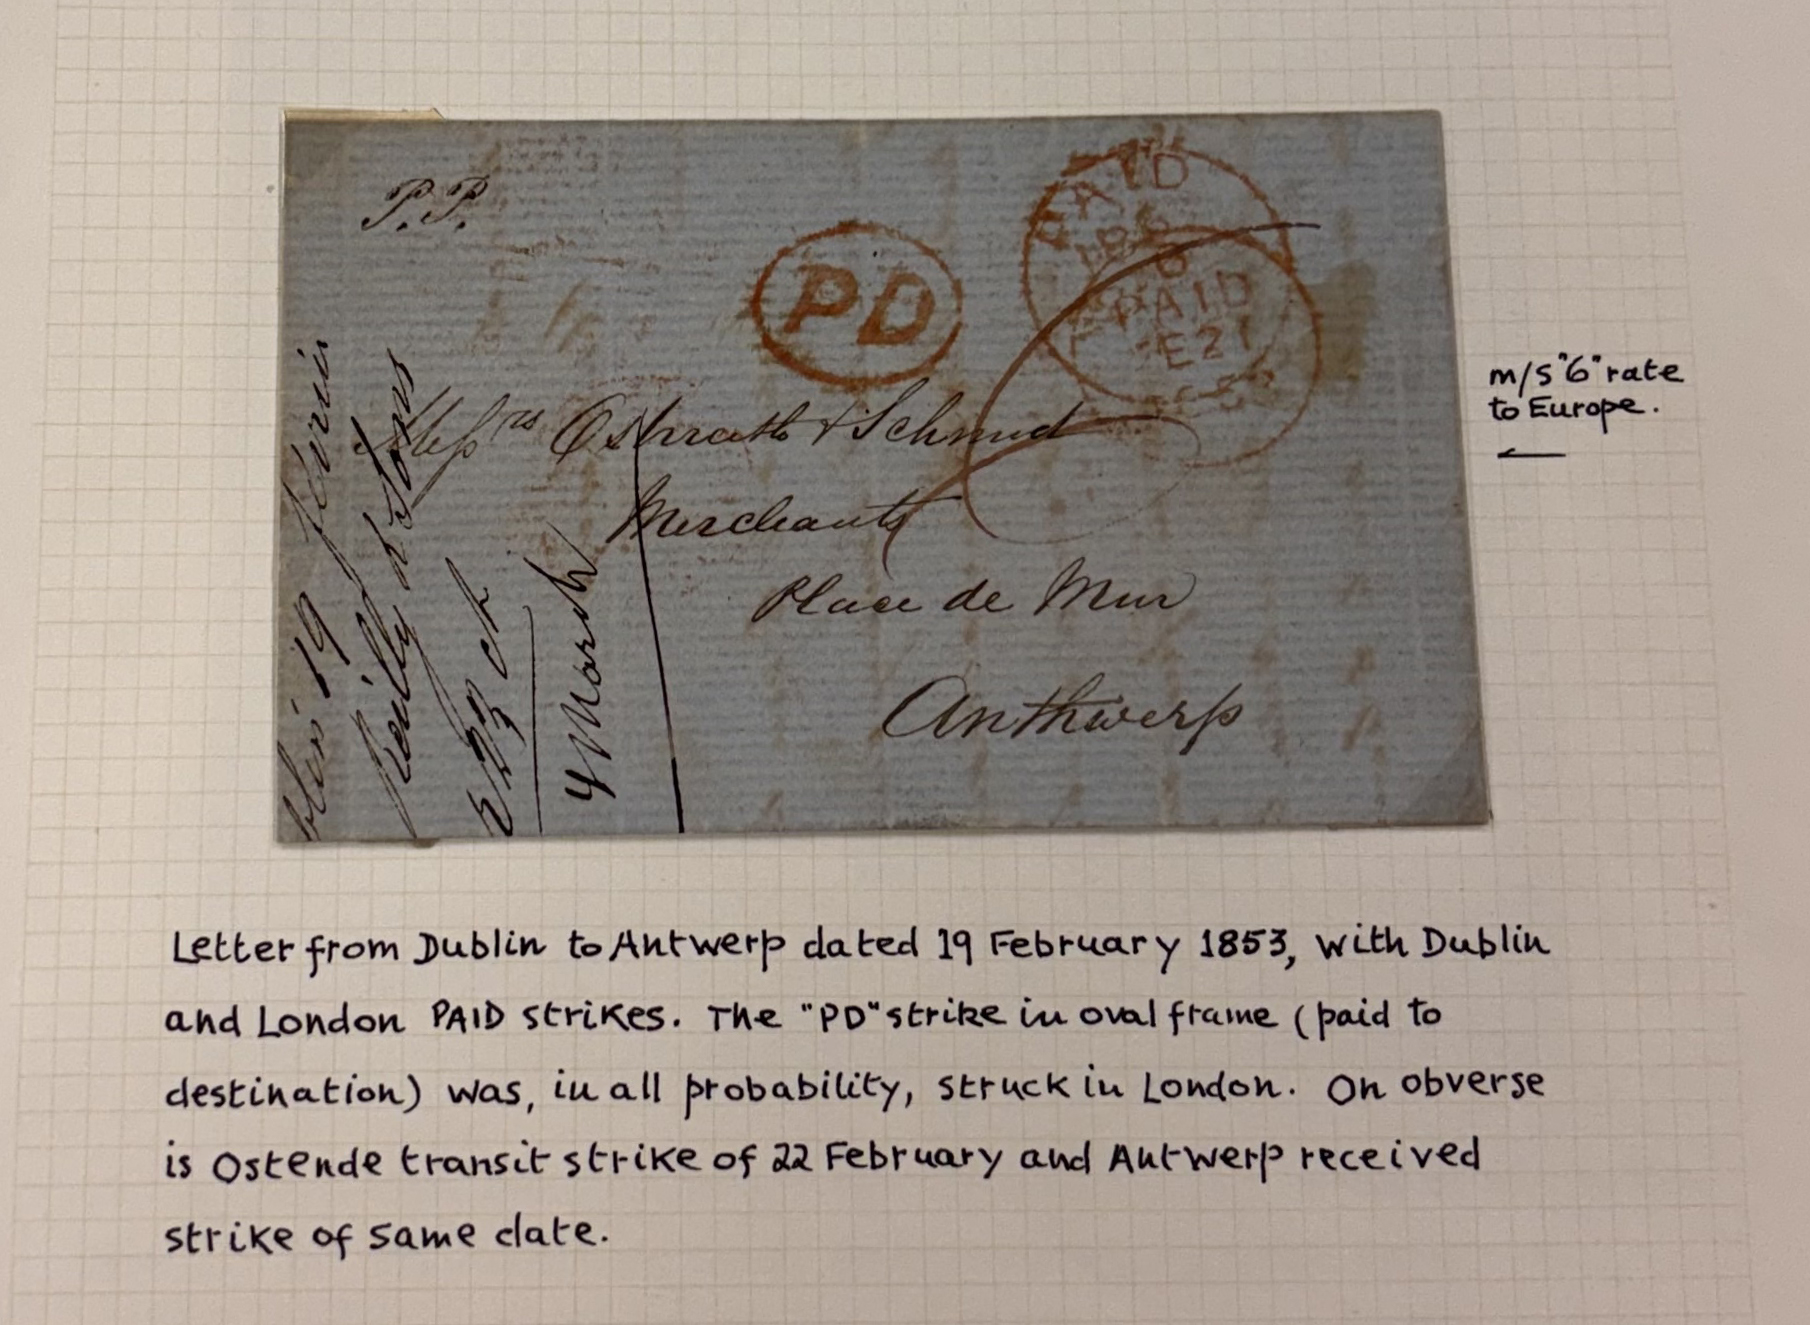 P.P.
PD
PAID
PAID
E21
Messrs Osterrath & Schmid
Merchants
Place de Mur
Anthwerp
19
Reilly & Sons
4 March
m/s "6" rate
to Europe.
Letter from Dublin to Antwerp dated 19 February 1853, with Dublin
and London PAID strikes. The "PD" strike in oval frame (paid to
destination) was, in all probability, struck in London. On obverse
is Ostende transit strike of 22 February and Antwerp received
strike of same date.